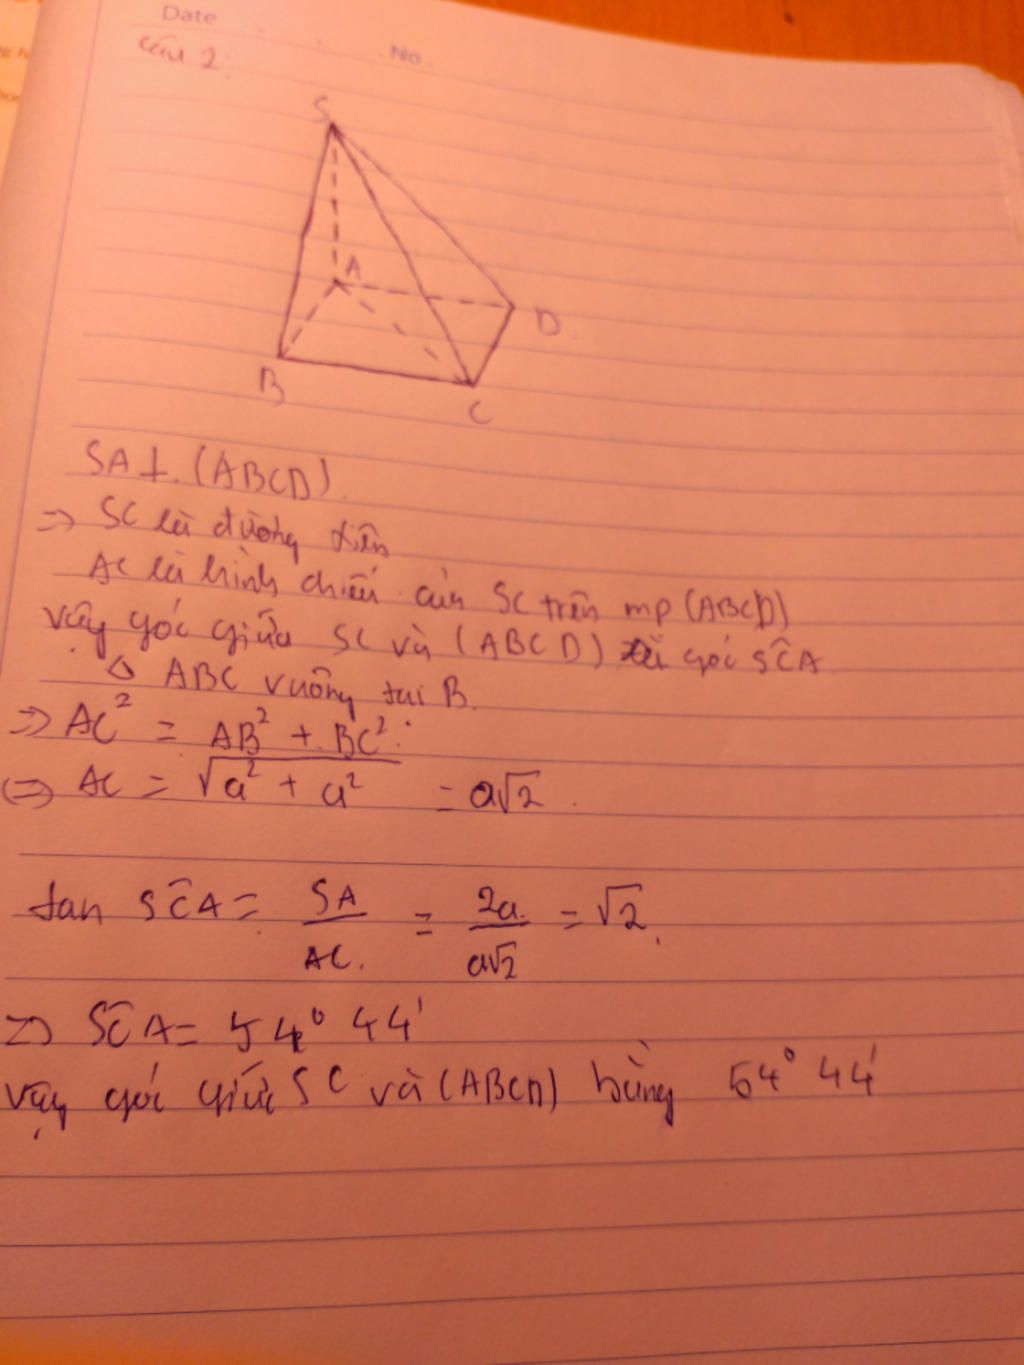 Date
No.
Câu 2:
S
A
D
B
C
SA⊥.(ABCD).
=> SC là đường xiên
AC là hình chiếu của SC trên mp (ABCD)
Vậy góc giữa SC và (ABCD) là góc SĈA
△ ABC vuông tại B.
=> AC² = AB² + BC².
<=> AC = √(a² + a²) = a√2.
tan SĈA = SA/AC. = 2a/a√2 = √2.
=> SĈA = 54° 44'
Vậy góc giữa SC và (ABCD) bằng 54° 44'